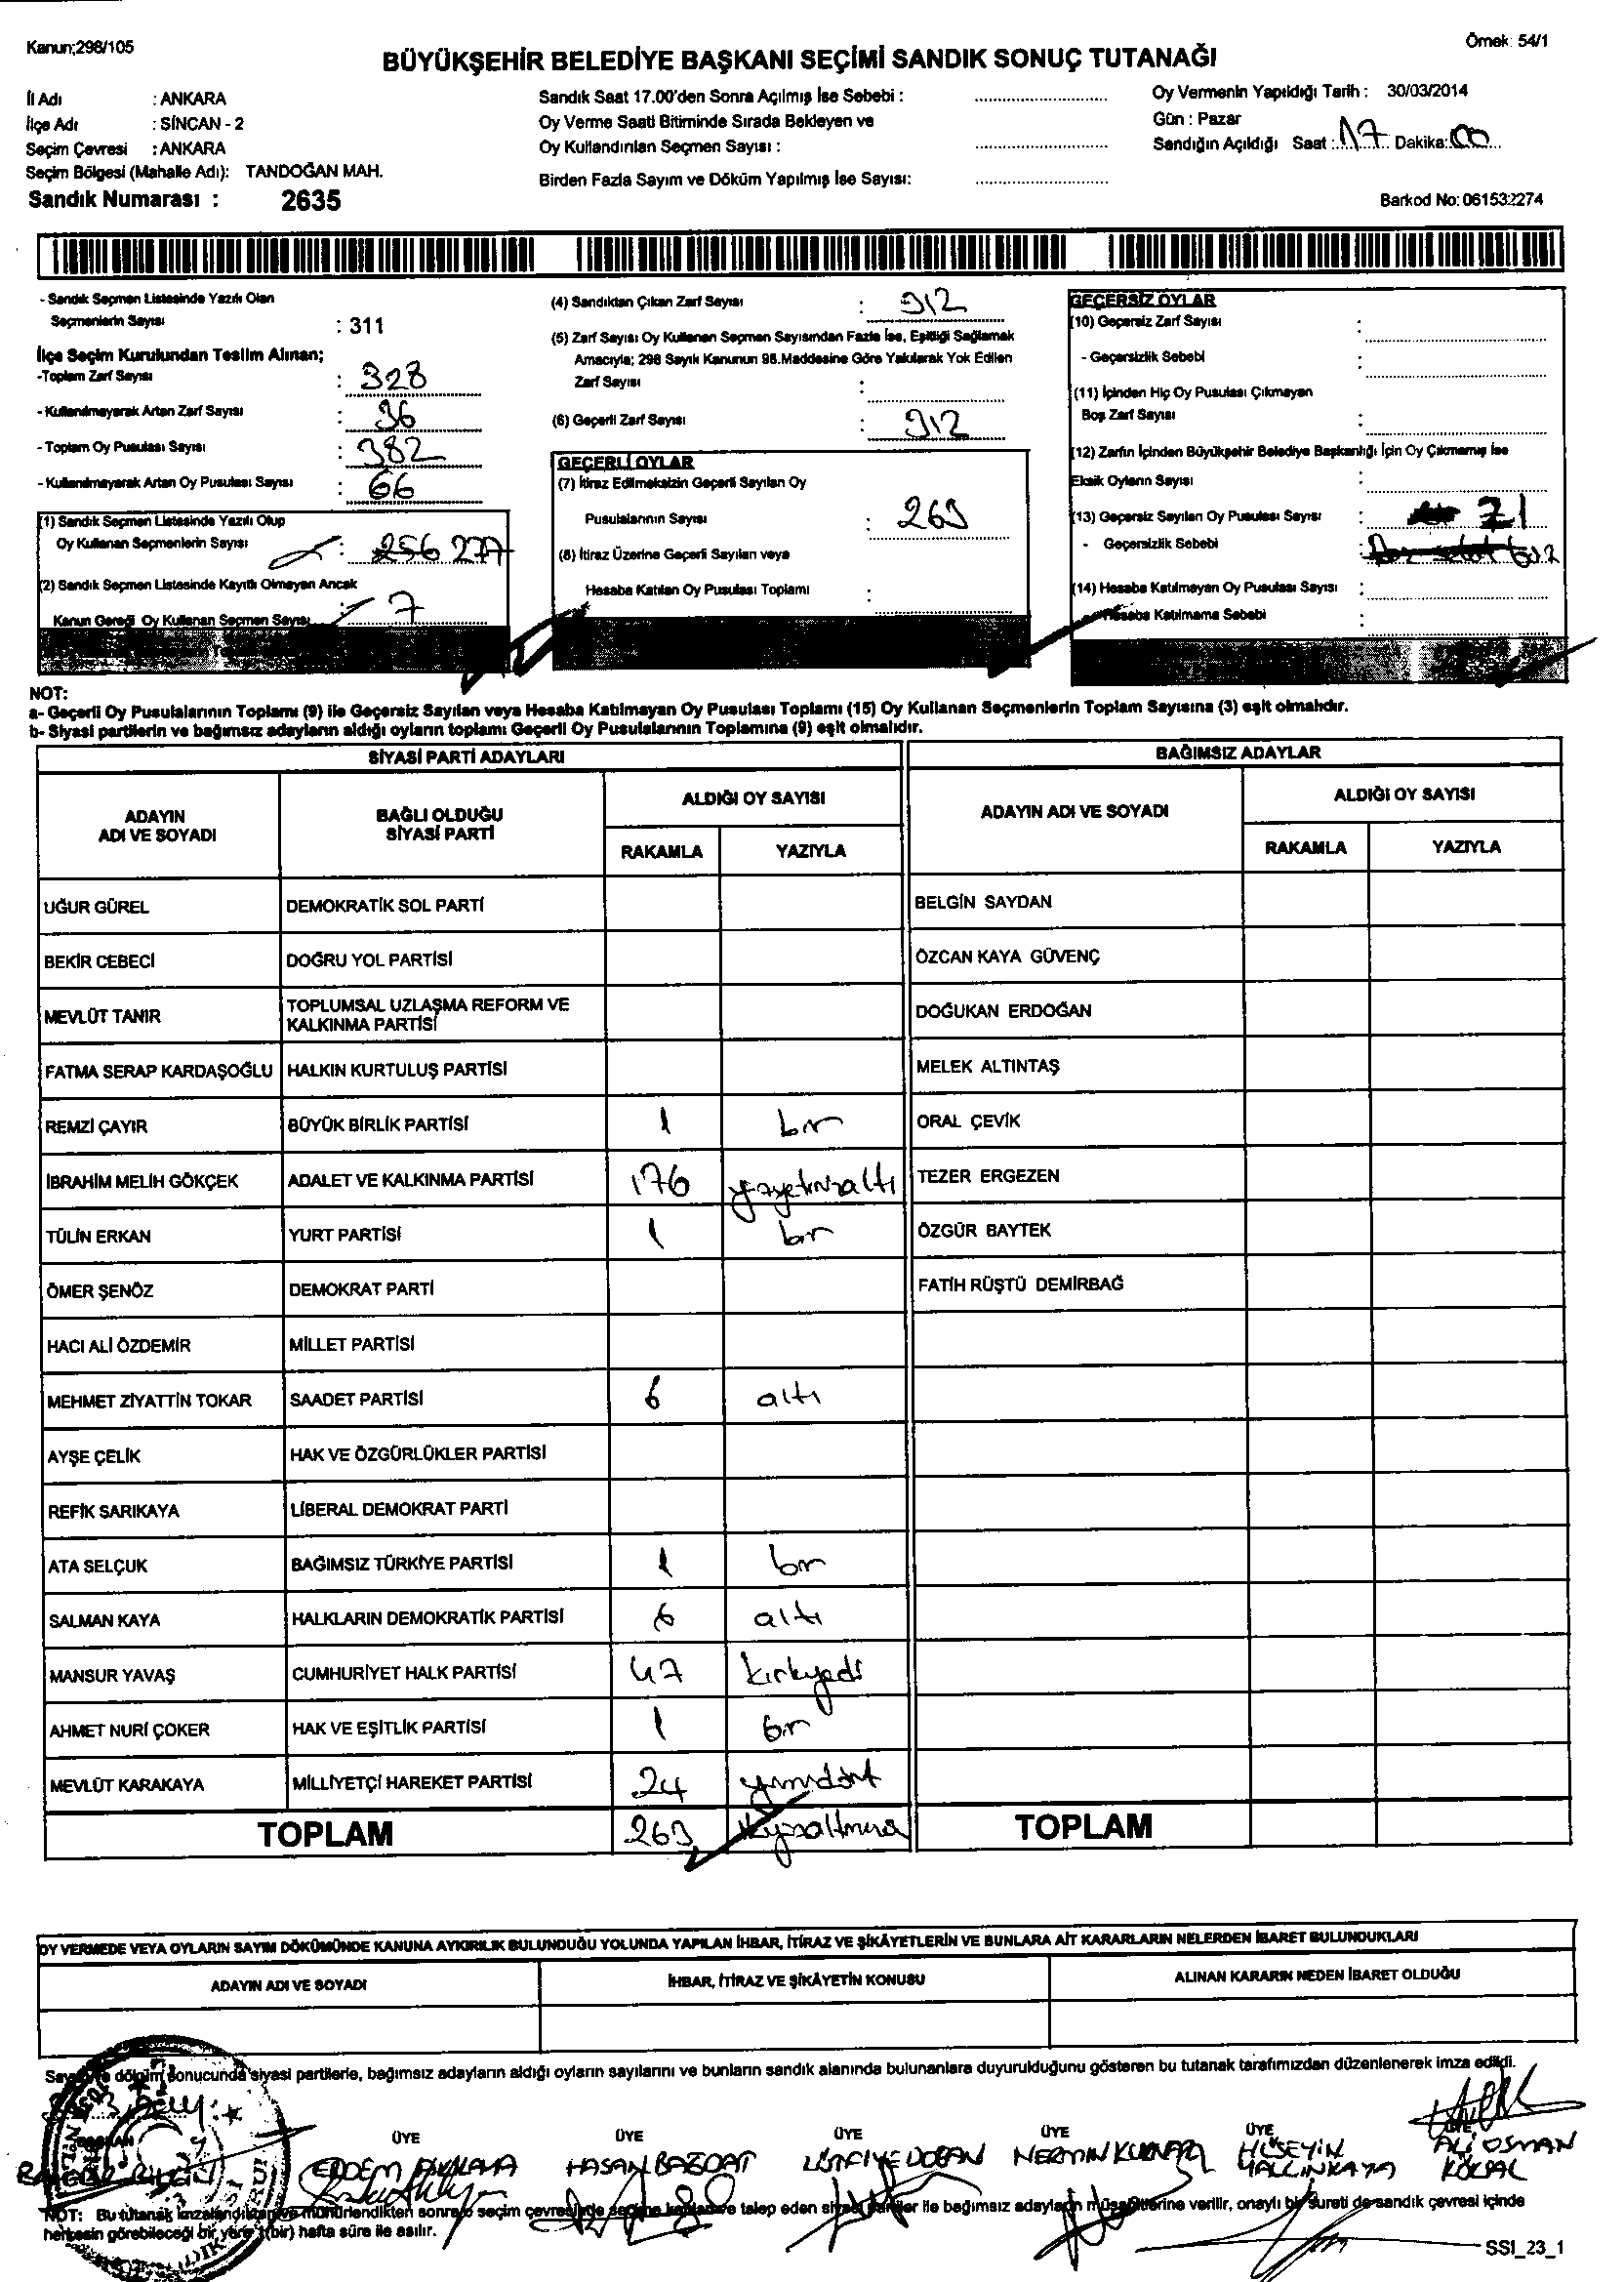 Kanun;298/105
Örnek: 54/1
BÜYÜKŞEHİR BELEDİYE BAŞKANI SEÇİMİ SANDIK SONUÇ TUTANAĞI
İl Adı : ANKARA
İlçe Adı : SİNCAN - 2
Seçim Çevresi : ANKARA
Seçim Bölgesi (Mahalle Adı): TANDOĞAN MAH.
Sandık Numarası : 2635
Sandık Saat 17.00'den Sonra Açılmış İse Sebebi :
Oy Verme Saati Bitiminde Sırada Bekleyen ve
Oy Kullandırılan Seçmen Sayısı :
Birden Fazla Sayım ve Döküm Yapılmış İse Sayısı:
Oy Vermenin Yapıldığı Tarih : 30/03/2014
Gün : Pazar
Sandığın Açıldığı Saat : 17 Dakika: 00
Barkod No: 061532274
- Sandık Seçmen Listesinde Yazılı Olan
Seçmenlerin Sayısı : 311
İlçe Seçim Kurulundan Teslim Alınan;
-Toplam Zarf Sayısı : 328
- Kullanılmayarak Artan Zarf Sayısı : 36
- Toplam Oy Pusulası Sayısı : 382
- Kullanılmayarak Artan Oy Pusulası Sayısı : 66
(1) Sandık Seçmen Listesinde Yazılı Olup
Oy Kullanan Seçmenlerin Sayısı : 256 277
(2) Sandık Seçmen Listesinde Kayıtlı Olmayan Ancak
Kanun Gereği Oy Kullanan Seçmen Sayısı : 7
(4) Sandıktan Çıkan Zarf Sayısı : 312
(5) Zarf Sayısı Oy Kullanan Seçmen Sayısından Fazla İse, Eşitliği Sağlamak
Amacıyla; 298 Sayılı Kanunun 98.Maddesine Göre Yakılarak Yok Edilen
Zarf Sayısı :
(6) Geçerli Zarf Sayısı : 312
GEÇERLİ OYLAR
(7) İtiraz Edilmeksizin Geçerli Sayılan Oy
Pusulalarının Sayısı : 263
(8) İtiraz Üzerine Geçerli Sayılan veya
Hesaba Katılan Oy Pusulası Toplamı :
GEÇERSİZ OYLAR
(10) Geçersiz Zarf Sayısı :
- Geçersizlik Sebebi :
(11) İçinden Hiç Oy Pusulası Çıkmayan
Boş Zarf Sayısı :
(12) Zarfın İçinden Büyükşehir Belediye Başkanlığı İçin Oy Çıkmamış İse
Eksik Oyların Sayısı :
(13) Geçersiz Sayılan Oy Pusulası Sayısı : 21
- Geçersizlik Sebebi :
(14) Hesaba Katılmayan Oy Pusulası Sayısı :
Hesaba Katılmama Sebebi :
NOT:
a- Geçerli Oy Pusulalarının Toplamı (9) ile Geçersiz Sayılan veya Hesaba Katılmayan Oy Pusulası Toplamı (15) Oy Kullanan Seçmenlerin Toplam Sayısına (3) eşit olmalıdır.
b- Siyasi partilerin ve bağımsız adayların aldığı oyların toplamı Geçerli Oy Pusulalarının Toplamına (9) eşit olmalıdır.
SİYASİ PARTİ ADAYLARI
BAĞIMSIZ ADAYLAR
ADAYIN ADI VE SOYADI
BAĞLI OLDUĞU SİYASİ PARTİ
ALDIĞI OY SAYISI
RAKAMLA YAZIYLA
ADAYIN ADI VE SOYADI
ALDIĞI OY SAYISI
RAKAMLA YAZIYLA
UĞUR GÜREL DEMOKRATİK SOL PARTİ BELGİN SAYDAN
BEKİR CEBECİ DOĞRU YOL PARTİSİ ÖZCAN KAYA GÜVENÇ
MEVLÜT TANIR TOPLUMSAL UZLAŞMA REFORM VE KALKINMA PARTİSİ DOĞUKAN ERDOĞAN
FATMA SERAP KARDAŞOĞLU HALKIN KURTULUŞ PARTİSİ MELEK ALTINTAŞ
REMZİ ÇAYIR BÜYÜK BİRLİK PARTİSİ 1 bir ORAL ÇEVİK
İBRAHİM MELİH GÖKÇEK ADALET VE KALKINMA PARTİSİ 176 yüzyetmişaltı TEZER ERGEZEN
TÜLİN ERKAN YURT PARTİSİ 1 bir ÖZGÜR BAYTEK
ÖMER ŞENÖZ DEMOKRAT PARTİ FATİH RÜŞTÜ DEMİRBAĞ
HACI ALİ ÖZDEMİR MİLLET PARTİSİ
MEHMET ZİYATTİN TOKAR SAADET PARTİSİ 6 altı
AYŞE ÇELİK HAK VE ÖZGÜRLÜKLER PARTİSİ
REFİK SARIKAYA LİBERAL DEMOKRAT PARTİ
ATA SELÇUK BAĞIMSIZ TÜRKİYE PARTİSİ 1 bir
SALMAN KAYA HALKLARIN DEMOKRATİK PARTİSİ 6 altı
MANSUR YAVAŞ CUMHURİYET HALK PARTİSİ 47 kırkyedi
AHMET NURİ ÇOKER HAK VE EŞİTLİK PARTİSİ 1 bir
MEVLÜT KARAKAYA MİLLİYETÇİ HAREKET PARTİSİ 24 yirmidört
TOPLAM 263 TOPLAM
OY VERMEDE VEYA OYLARIN SAYIM DÖKÜMÜNDE KANUNA AYKIRILIK BULUNDUĞU YOLUNDA YAPILAN İHBAR, İTİRAZ VE ŞİKÂYETLERİN VE BUNLARA AİT KARARLARIN NELERDEN İBARET BULUNDUKLARI
ADAYIN ADI VE SOYADI İHBAR, İTİRAZ VE ŞİKÂYETİN KONUSU ALINAN KARARIN NEDEN İBARET OLDUĞU
Sayım ve döküm sonucunda siyasi partilerle, bağımsız adayların aldığı oyların sayılarını ve bunların sandık alanında bulunanlara duyurulduğunu gösteren bu tutanak tarafımızdan düzenlenerek imza edildi.
BAŞKAN ÜYE ÜYE ÜYE ÜYE ÜYE ÜYE
ERDEM HASAN BAZDAT LÜTFİYE DOĞAN NERMİN HÜSEYİN YALÇINKAYA ALİ OSMAN KÖKSAL
NOT: Bu tutanak imzalandıktan ve mühürlendikten sonra o seçim çevresinde seçime katılan ve talep eden siyasi partiler ile bağımsız adayların müşahitlerine verilir, onaylı bir sureti de sandık çevresi içinde
herkesin görebileceği bir yere 1(bir) hafta süre ile asılır.
SSI_23_1